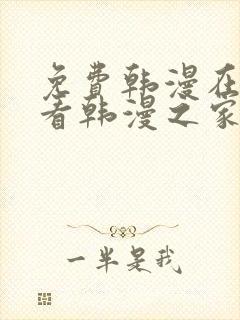 免费韩漫在
看韩漫之家
一半是我